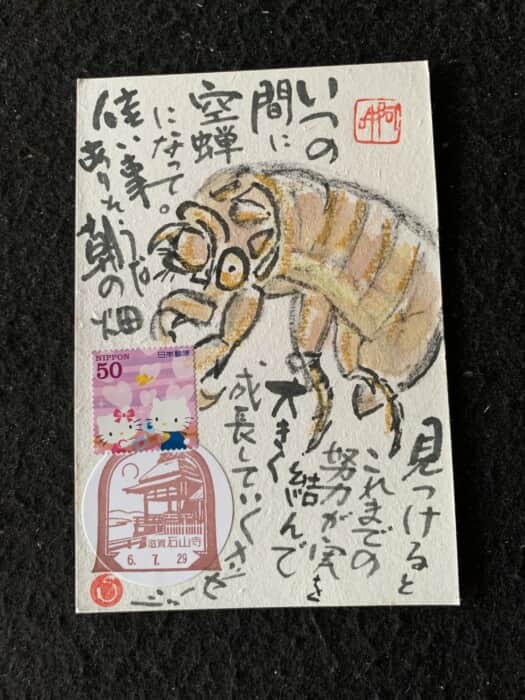 いつの
間に
空蝉
になって。
佳い事
ありそうな
朝の畑
見つけると
これまでの
努力が実を
結んで
大きく
成長していく
NIPPON
50
日本郵便
滋賀 石山寺
6. 7. 29